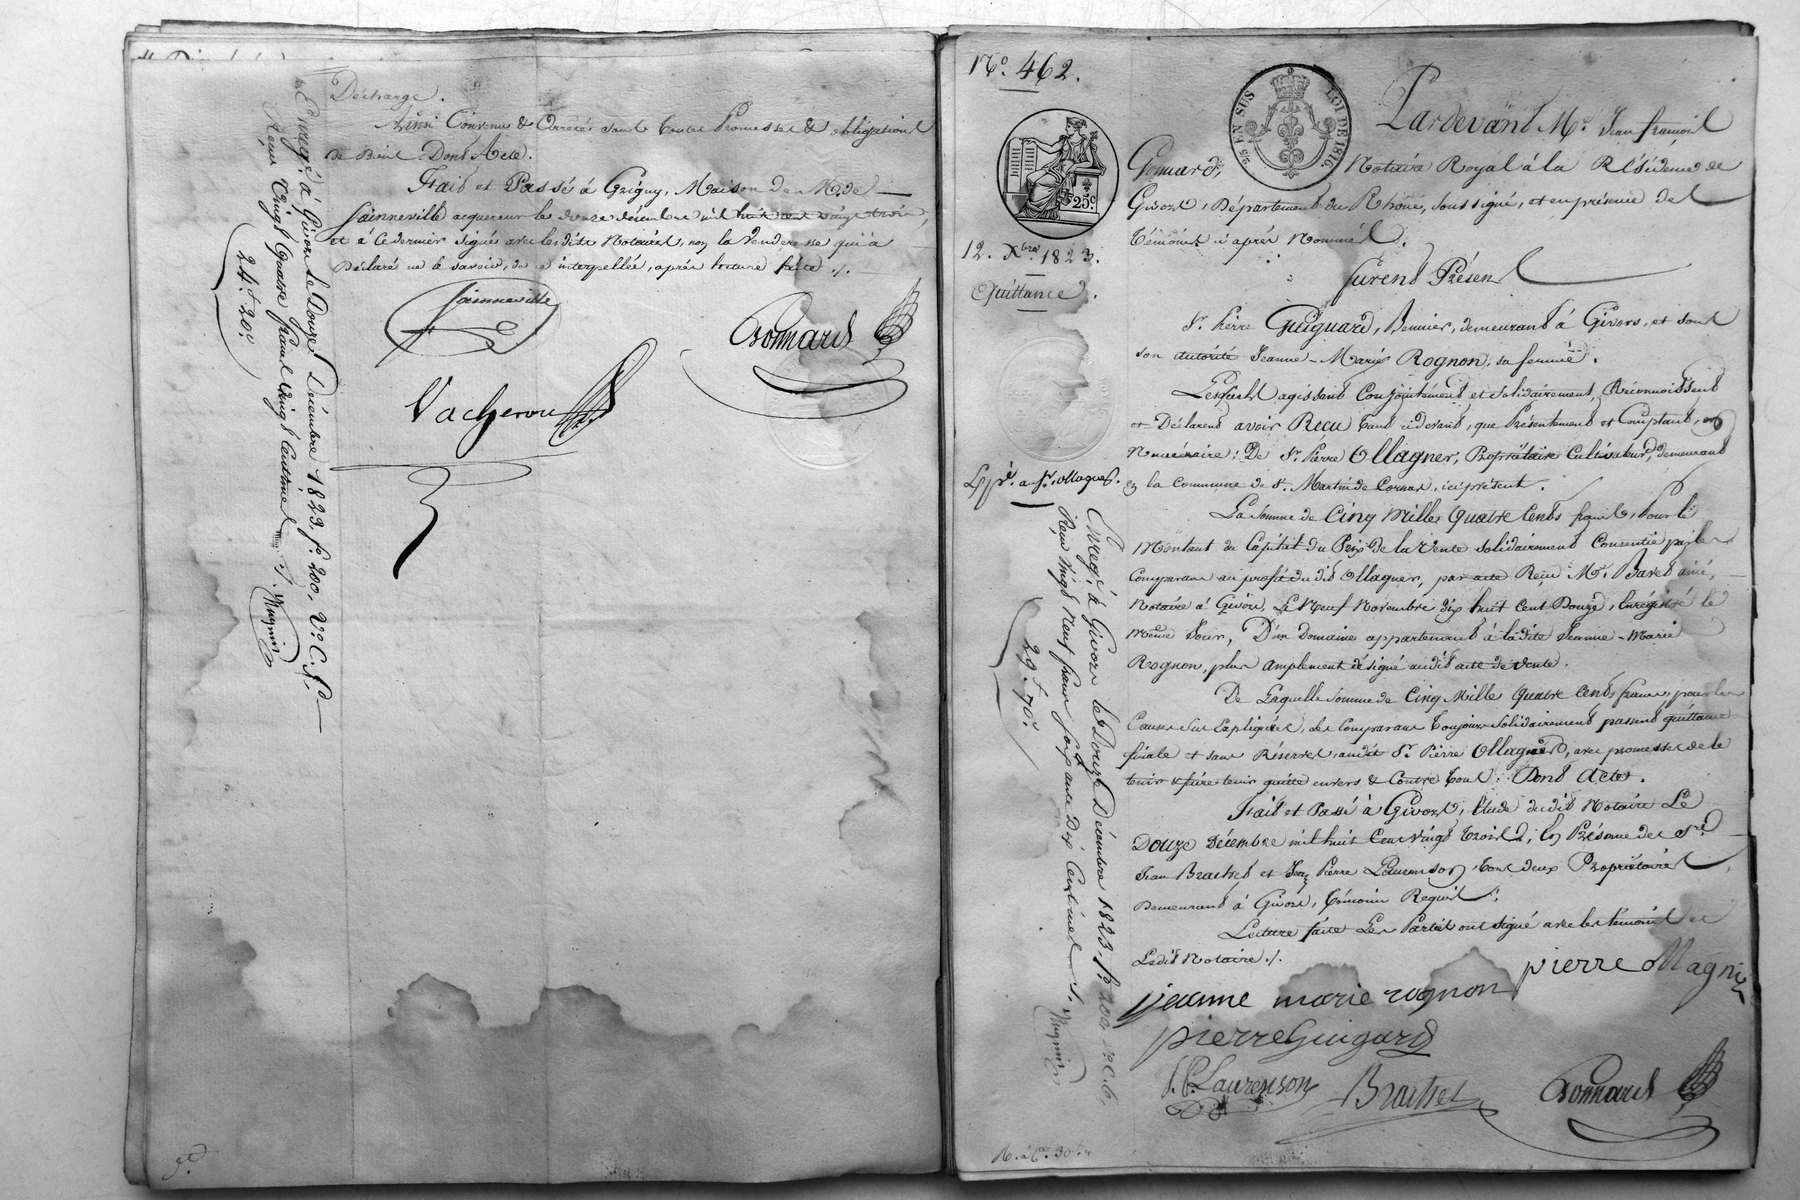 Décharge.
Ainsi Convenu & Arrêté sous toutes Promesses & obligations
de Droit. Dont Acte.
Fait et Passé à Grigny, Maison de Mr. de
Sainneville acquereur le douze décembre mil huit cent vingt trois,
et a ce dernier signé avec lesdits Notaires, non la venderesse qui a
Déclaré ne le savoir, de ce interpellée, après lecture faite ./.
Sainneville
Gonnard
Vacheron
Enregé. à Givors le Douze Décembre 1823, fo. 200, Vo. C. 5.
Reçu Vingt Quatre francs Vingt Centimes ./.
24.f 20.c
No. 462.
25 EN SUS
LOI DE 1816.
25c
12. Xbre. 1823.
Quittance.
Pardevant Me. Jean françois
Gonnard, Notaire Royal à la Résidence de
Givors, Département du Rhône, soussigné, et en présence des
témoins ci après Nommés.
furent Présens
Sr. Pierre Guignard, demeurant à Givors, et sous
son autorité Jeanne-Marie Rognon, sa femme.
Lesquels agissant Conjointement et solidairement, Reconnoissent
et Déclarent avoir Reçu tant cidevant, que Présentement et Comptant, en
Numéraire; De Sr. Pierre Ollagner, Propriétaire Cultivateur, demeurant
en la Commune de St. Martin de Cornas, ici présent.
Expé. a Sr. Ollagner.
La Somme de Cinq Mille Quatre Cents francs, Pour le
Montant du Capital du Prix de la Vente solidairement Consentie par les
Comparans au profit du dit Ollagner, par acte Reçu Me. ainé,
Notaire à Givors, Le Neuf Novembre dix huit Cent Douze, Enregistré le
Même Jour, D'un Domaine appartenant à ladite Jeanne-Marie
Rognon, plus amplement désigné audit acte de vente.
De Laquelle Somme de Cinq Mille Quatre Cents francs, pour les
Causes Sus Expliquées, Les Comparans toujours Solidairement passent quittance
finale et sans Réserves, audit Sr. Pierre Ollagner, avec promesses de le
tenir & faire tenir quitte envers & Contre tous. Dont Acte.
Fait et Passé à Givors, Etude dudit Notaire Le
Douze Décembre mil huit Cent vingt Trois, En Présence des Srs.
Jean Brachet et Jean Pierre Laurenson, tous deux Propriétaires,
Demeurant à Givors, témoins Requis.
Lecture faite Les Parties ont signé avec les témoins et
Ledit Notaire ./.
pierre ollagnier
jeanne marie rognon
pierre Guingard
J. P. Laurenson
Brachet
Gonnard
Enregé. à Givors le Douze Décembre 1823, fo. 200, Vo. C. 6.
Reçu Vingt Neuf francs soixante Dix Centimes ./.
29.f 70.c